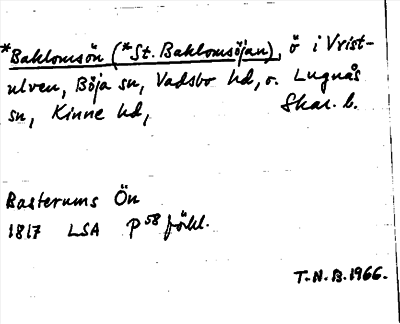 *Baklomsön (*St. Baklomsöjan), ö i Vrist-
ulven, Böja sn, Vadsbo hd, o. Lugnås
sn, Kinne hd, Skar. l.
Basterums Ön
1817 LSA P58 förkl.
T.N.B. 1966.